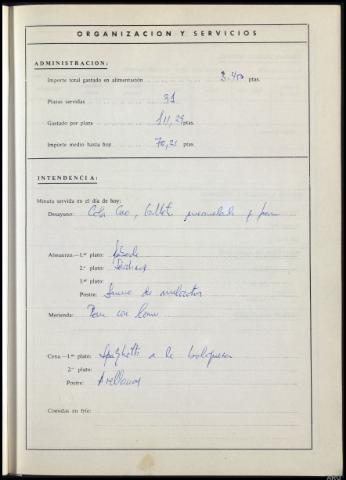 ORGANIZACION Y SERVICIOS
ADMINISTRACION:
Importe total gastado en alimentación 3.450 ptas.
Plazas servidas 31
Gastado por plaza 111,29 ptas.
Importe medio hasta hoy 70,21 ptas.
INTENDENCIA:
Minuta servida en el día de hoy:
Desayuno: Cola Cao, mermelada y pan
Almuerzo.—1.er plato:
2.º plato:
3.er plato:
Postre: de melocotón
Merienda: Pan con
Cena.—1.er plato: Spaghetti a la bolognesa
2.º plato:
Postre: Avellanas
Comidas en frío: